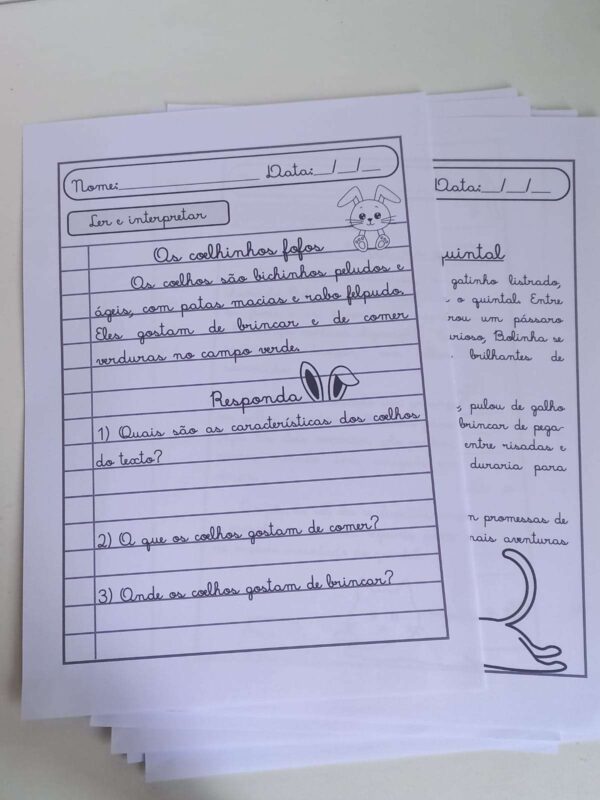 Nome:____________________ Data:__/__/__
Ler e interpretar
Os coelhinhos fofos
Os coelhos são bichinhos peludos e
ágeis, com patas macias e rabo felpudo.
Eles gostam de brincar e de comer
verduras no campo verde.
Responda
1) Quais são as características dos coelhos
do texto?
2) O que os coelhos gostam de comer?
3) Onde os coelhos gostam de brincar?
Data:__/__/__
quintal
gatinho listrado,
o quintal. Entre
um pássaro
Bolinha se
brilhantes de
, pulou de galho
brincar de pega-
entre risadas e
duraria para
promessas de
mais aventuras